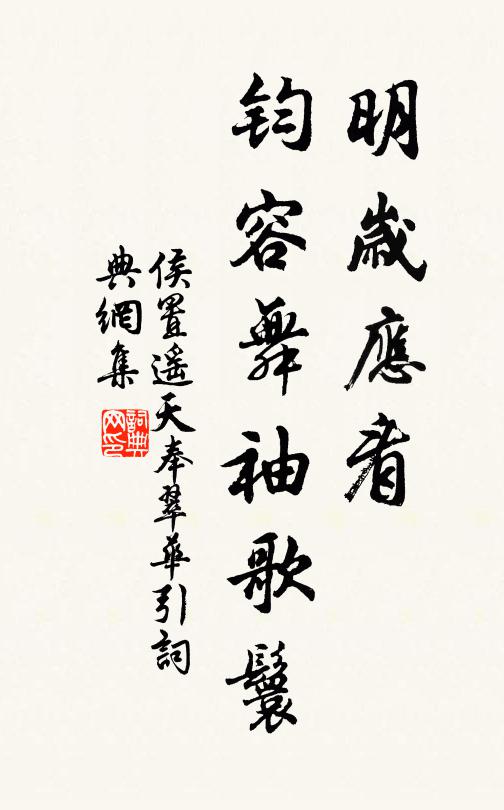 明歲應看
鈞容舞袖歌鬟
侯置遙天奉翠華引詞
典網集
詞典
网印